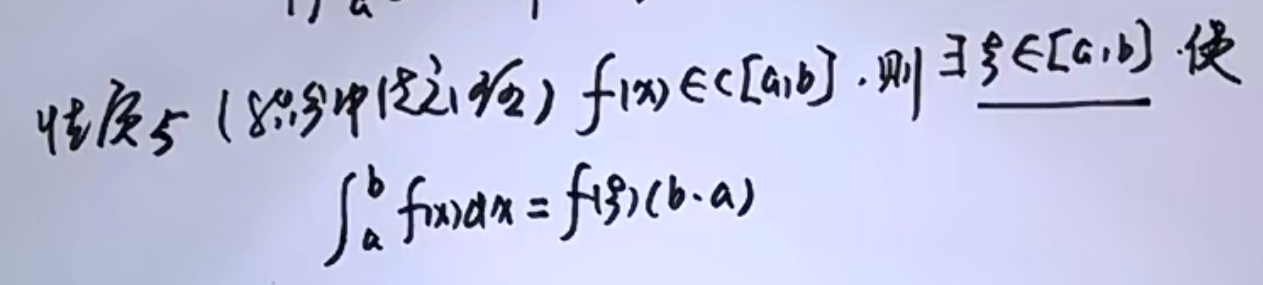 性质5 (积分中值定理) f(x)∈C[a,b].则∃ξ∈[a,b].使
∫_a^b f(x)dx = f(ξ)(b-a)